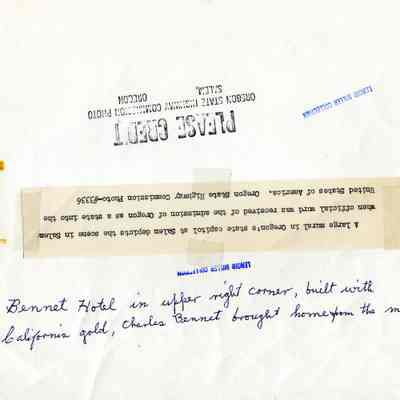 PLEASE CREDIT
OREGON STATE HIGHWAY COMMISSION PHOTO
SALEM, OREGON
LENOIR MILLER COLLECTION
A large mural in Oregon's state capitol at Salem depicts the scene in Salem
when official word was received of the admission of Oregon as a state into the
United States of America. Oregon State Highway Commission Photo #3336
LENOIR MILLER COLLECTION
Bennet Hotel in upper right corner, built with
California gold, Charles Bennet brought home from the m